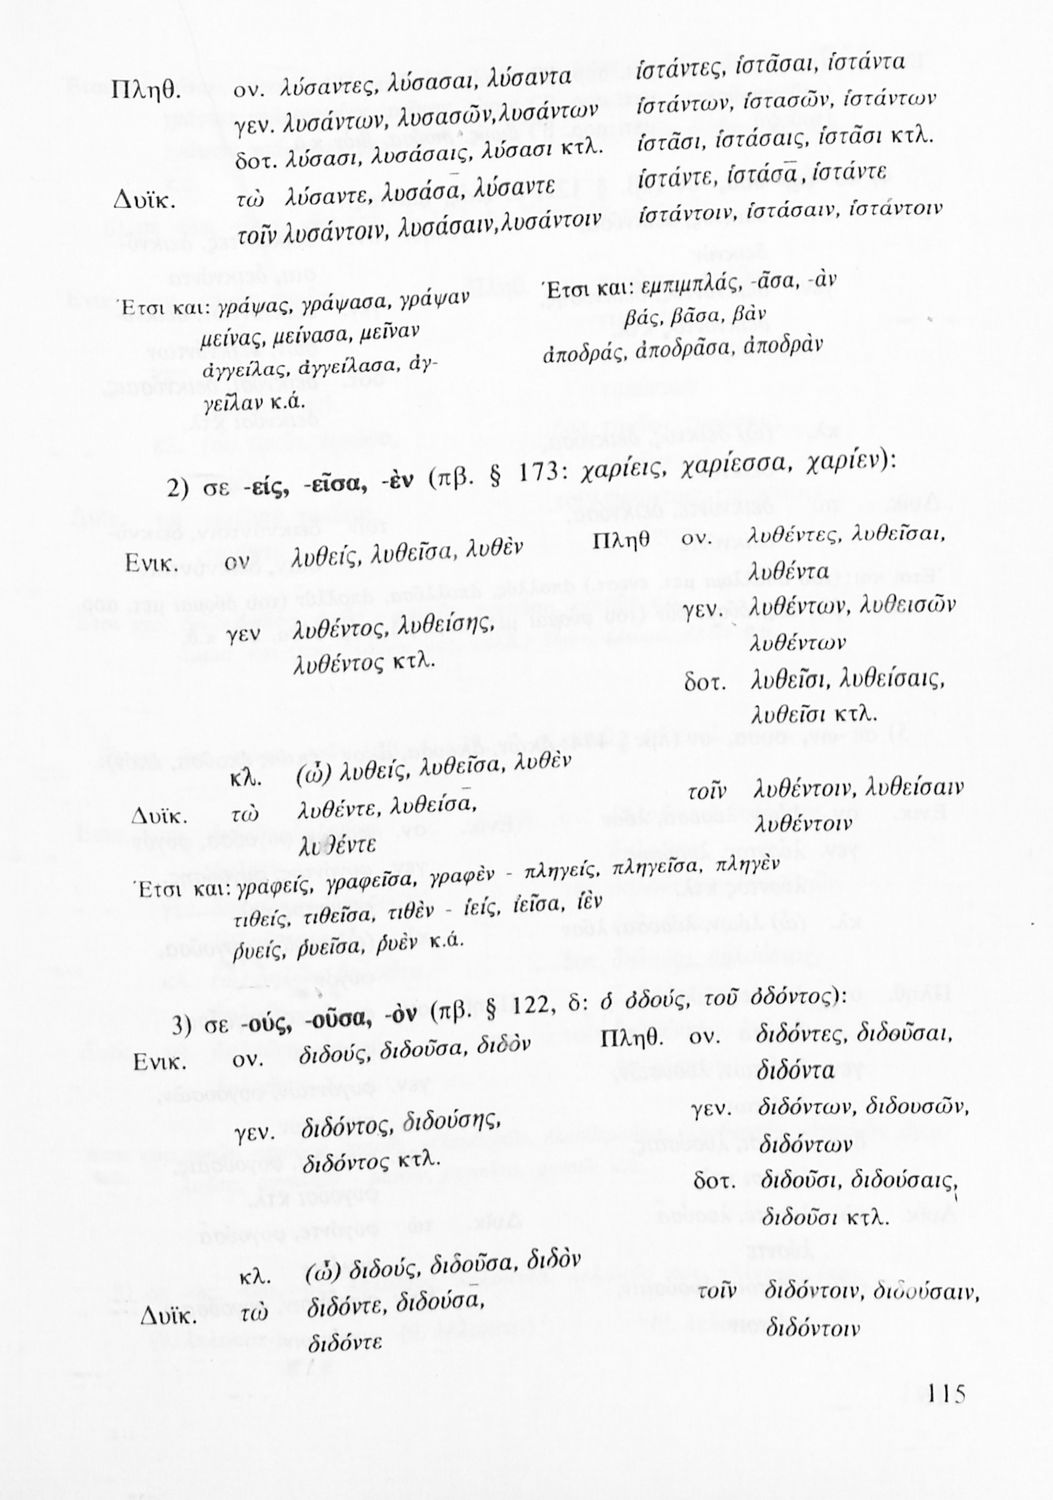 Πληθ. ον. λύσαντες, λύσασαι, λύσαντα ἱστάντες, ἱστᾶσαι, ἱστάντα
γεν. λυσάντων, λυσασῶν,λυσάντων ἱστάντων, ἱστασῶν, ἱστάντων
δοτ. λύσασι, λυσάσαις, λύσασι κτλ. ἱστᾶσι, ἱστάσαις, ἱστᾶσι κτλ.
Δυϊκ. τὼ λύσαντε, λυσάσᾱ, λύσαντε ἱστάντε, ἱστάσᾱ, ἱστάντε
τοῖν λυσάντοιν, λυσάσαιν,λυσάντοιν ἱστάντοιν, ἱστάσαιν, ἱστάντοιν
Έτσι και: γράψας, γράψασα, γράψαν Έτσι και: εμπιμπλάς, -ᾶσα, -ὰν
μείνας, μείνασα, μεῖναν βάς, βᾶσα, βὰν
ἀγγείλας, ἀγγείλασα, ἀγ- ἀποδράς, ἀποδρᾶσα, ἀποδρὰν
γεῖλαν κ.ά.
2) σε -είς, -εῖσα, -ὲν (πβ. § 173: χαρίεις, χαρίεσσα, χαρίεν):
Ενικ. ον λυθείς, λυθεῖσα, λυθὲν Πληθ ον. λυθέντες, λυθεῖσαι,
λυθέντα
γεν λυθέντος, λυθείσης, γεν. λυθέντων, λυθεισῶν
λυθέντος κτλ. λυθέντων
δοτ. λυθεῖσι, λυθείσαις,
λυθεῖσι κτλ.
κλ. (ὦ) λυθείς, λυθεῖσα, λυθὲν
Δυϊκ. τὼ λυθέντε, λυθείσᾱ, τοῖν λυθέντοιν, λυθείσαιν
λυθέντε λυθέντοιν
Έτσι και: γραφείς, γραφεῖσα, γραφὲν - πληγείς, πληγεῖσα, πληγὲν
τιθείς, τιθεῖσα, τιθὲν - ἱείς, ἱεῖσα, ἱὲν
ῥυείς, ῥυεῖσα, ῥυὲν κ.ά.
3) σε -ούς, -οῦσα, -ὸν (πβ. § 122, δ: ὁ ὀδούς, τοῦ ὀδόντος):
Ενικ. ον. διδούς, διδοῦσα, διδὸν Πληθ. ον. διδόντες, διδοῦσαι,
διδόντα
γεν. διδόντος, διδούσης, γεν. διδόντων, διδουσῶν,
διδόντος κτλ. διδόντων
δοτ. διδοῦσι, διδούσαις,
διδοῦσι κτλ.
κλ. (ὦ) διδούς, διδοῦσα, διδὸν
Δυϊκ. τὼ διδόντε, διδούσᾱ, τοῖν διδόντοιν, διδούσαιν,
διδόντε διδόντοιν
115